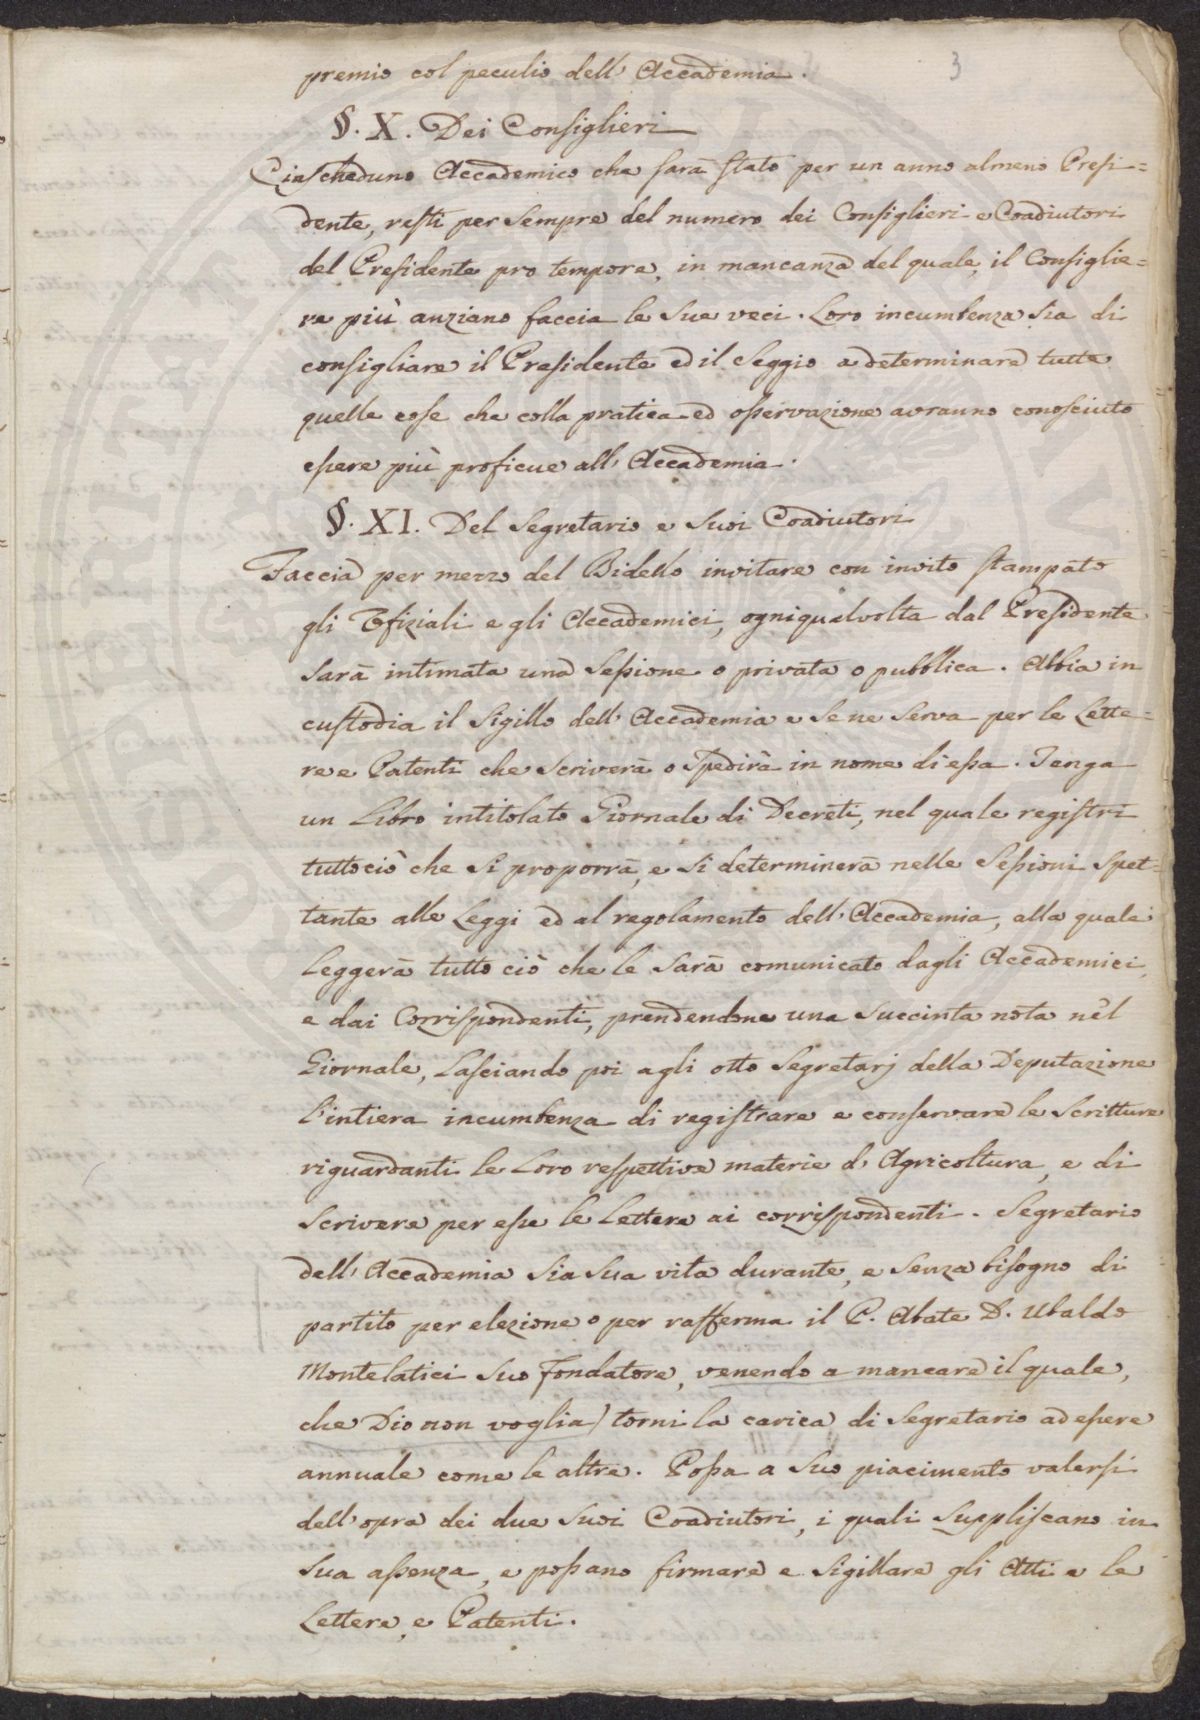 3
premio col peculio dell' Accademia.
§. X. Dei Consiglieri
Ciascheduno Accademico che sarà stato per un anno almeno Presi=
dente, resti per sempre del numero dei Consiglieri e Coadiutori
del Presidente pro tempore, in mancanza del quale, il Consiglie=
re più anziano faccia le sue veci. Loro incumbenza sia di
consigliare il Presidente ed il Seggio a determinare tutte
quelle cose che colla pratica ed osservazione avranno conosciuto
essere più proficue all' Accademia.
§. XI. Del Segretario e Suoi Coadiutori
Faccia per mezzo del Bidello invitare con invito stampato
gli Ufiziali e gli Accademici, ogniqualvolta dal Presidente
sarà intimata una Sessione o privata o pubblica. Abbia in
custodia il Sigillo dell' Accademia e se ne serva per le Lette=
re e Patenti che scriverà o spedirà in nome di essa. Tenga
un Libro intitolato Giornale di Decreti, nel quale registri
tuttociò che si proporrà, e si determinerà nelle Sessioni spet=
tante alle Leggi ed al regolamento dell' Accademia, alla quale
leggerà tutto ciò che le sarà comunicato dagli Accademici,
e dai Corrispondenti, prendendone una succinta nota nel
Giornale, lasciando poi agli otto Segretarj della Deputazione
l'intiera incumbenza di registrare e conservare le scritture
riguardanti le loro respettive materie d' Agricoltura, e di
scrivere per esse le lettere ai corrispondenti. Segretario
dell' Accademia sia sua vita durante, e senza bisogno di
partito per elezione o per rafferma il P. Abate D. Ubaldo
Montelatici suo fondatore, venendo a mancare il quale,
che Dio non voglia) torni la carica di Segretario ad essere
annuale come le altre. Possa a suo piacimento valersi
dell' opra dei due suoi Coadiutori, i quali suppliscano in
sua assenza, e possano firmare e sigillare gli Atti e le
Lettere, e Patenti.